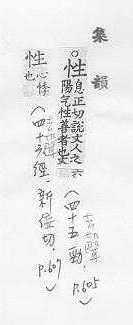 集韻
○性 息正切說文人之
陽气性善者也文六
(四十五勁 p.605)
性 心悸
也
(四十六徑・新佞切. p.607)